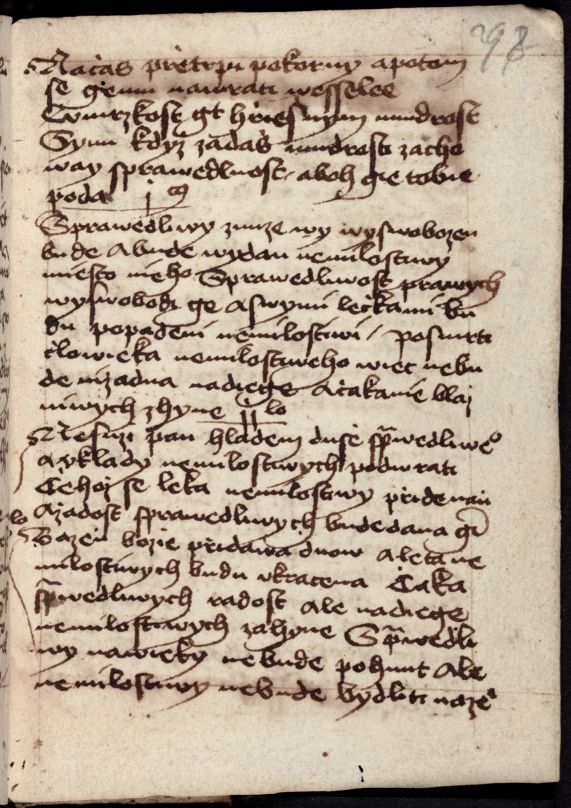 298
Načas pretrpi pokorny apotom
se gemu nawrati wesselee
Comrzkost gt hriesnym mudrost
Synu kdyz zadas mudrosti zacho
way sprawedlnost, aboh gie tobie
poda
Sprawedlywy znuze wy wyswobozen
bude Abude wydan nemilostiwy
miesto nieho Sprawedliwost prawych
wyswobodi ge Aswymi leckami bu
du popadeni nemilostiwi / posmrti
clowieka nemilostiweho wiec nebu
de nizadna nadiege Acakanie
niwych zhyne
Nesuzi pan hladem duse sprawedliweho
Ayklady nemilostiwych podwrati
Cehoz se leka nemilostiwy pride nan
Azadost sprawedliwych bude dana gi
Bazen bozie pridawa dnow Aleta ne
milostiwych budu ukracena Caka
sprawedliwych radost Ale nadiege
nemilostiwych zahyne Sprawedli
wy nawieky nebude pohnut Ale
nemilostiwy nebude bydliti naze